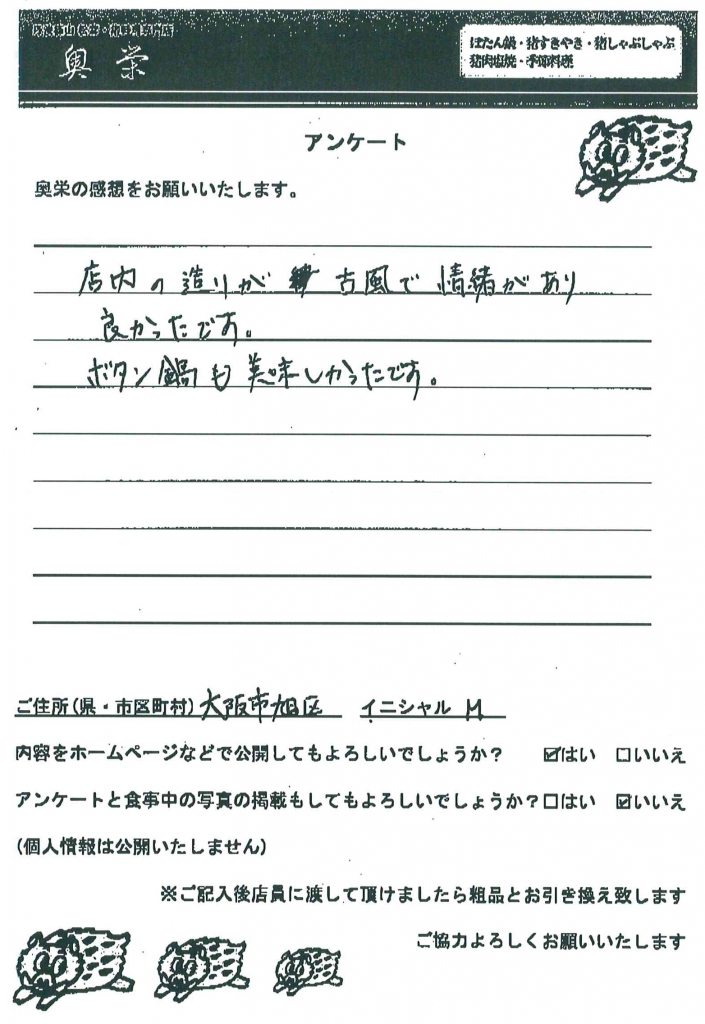 奥栄
ぼたん鍋・猪すきやき・猪しゃぶしゃぶ
猪肉塩焼・季節料理
アンケート
奥栄の感想をお願いいたします。
店内の造りが 古風で 情緒があり
良かったです。
ボタン鍋も美味しかったです。
ご住所(県・市区町村) 大阪市旭区 イニシャル M
内容をホームページなどで公開してもよろしいでしょうか? ☑はい □いいえ
アンケートと食事中の写真の掲載もしてもよろしいでしょうか?□はい ☑いいえ
(個人情報は公開いたしません)
※ご記入後店員に渡して頂けましたら粗品とお引き換え致します
ご協力よろしくお願いいたします